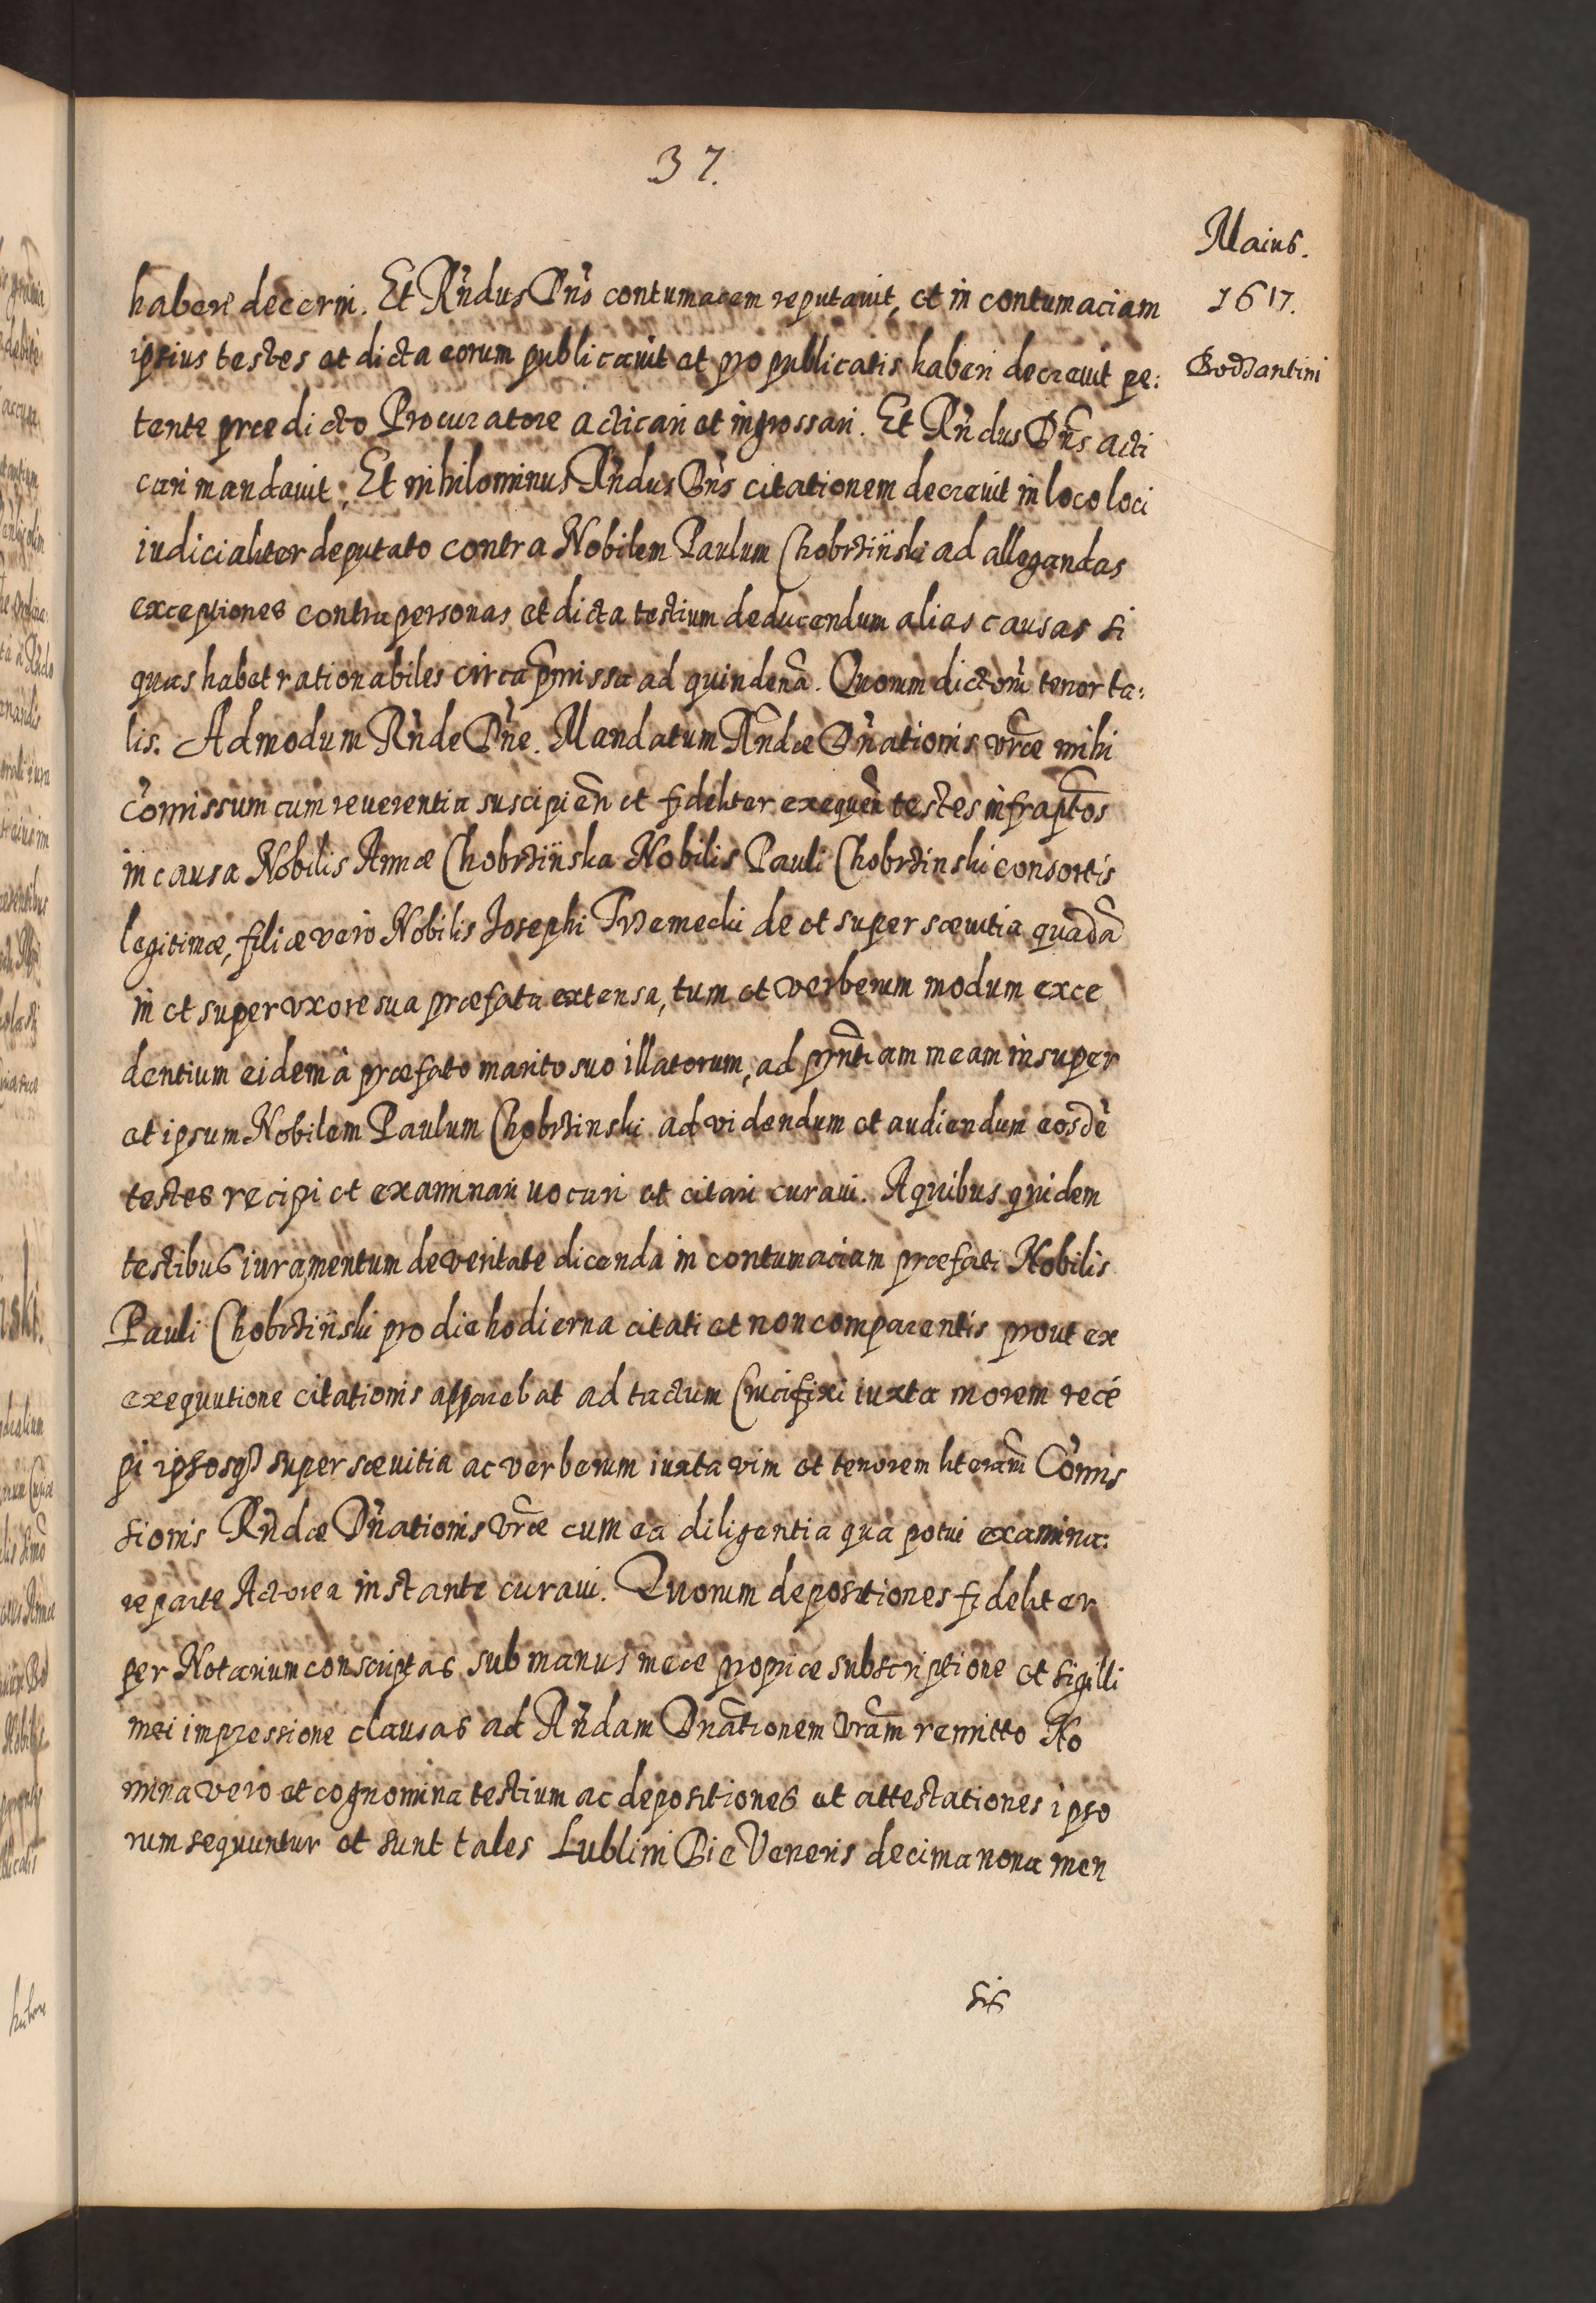 37.
Maius.
1617.
haberi decerni. Et Rńdus Dńs contumacem reputauit, et in contumaciam
ipsius testes et dicta eorum publicauit et pro publicatis haberi decreuit pe:
tente prædicto Procuratore acticari et ingrossari. Et Rńdus Dńs acti
cari mandauit. Et nihilominus Rńdus Dńs citationem decreuit in loco loci
iudicialiter deputato contra Nobilem Paulum Chobrziński ad allegandas
exceptiones contra personas et dicta testium deducendum alias causas si
quas habet rationabiles circa p̃missa ad quindenã. Quorum dictorũ tenor ta:
lis. Admodum Rńde Dńe. Mandatum Rńdæ Dńationis vr̃æ mihi
cõmissum cum reuerentia suscipieñ et fideliter exequeñ testes infrap̃tos
in causa Nobilis Annæ Chobrzińska Nobilis Pauli Chobrzinski consortis
legitimæ, filiæ vero Nobilis Josephi Trzemecki de et super sæuitia quadã
in et super vxore sua præfata extensa, tum et verberum modum exce
dentium eidem à præfato marito suo illatorum, ad p̃ntiam meam insuper
et ipsum Nobilem Paulum Chobrzinski ad videndum et audiendum eosdẽ
testes recipi et examinari uocari et citari curaui. A quibus quidem
testibus iuramentum de veritate dicenda in contumaciam præfati Nobilis
Pauli Chobrziński pro die hodierna citati et non comparentis prout ex
exequutione citationis apparebat ad tactum Crucifixi iuxta morem recé
pi ipsosq3 super sæuitia ac verberum iuxta vim et tenorem literarũ Cõmis
sionis Rńdæ Dńationis vr̃æ cum ea diligentia qua potui examina:
re parte Actorea instante curaui. Quorum depositiones fideliter
per Notarium conscriptas sub manus meæ propriæ subscriptione et sigilli
mei impressione clausas ad Rńdam Dñationem vr̃am remitto No
mina vero et cognomina testium ac depositiones et attestationes ipso
rum sequuntur et sunt tales Lublini Die Veneris decima nona men
sis